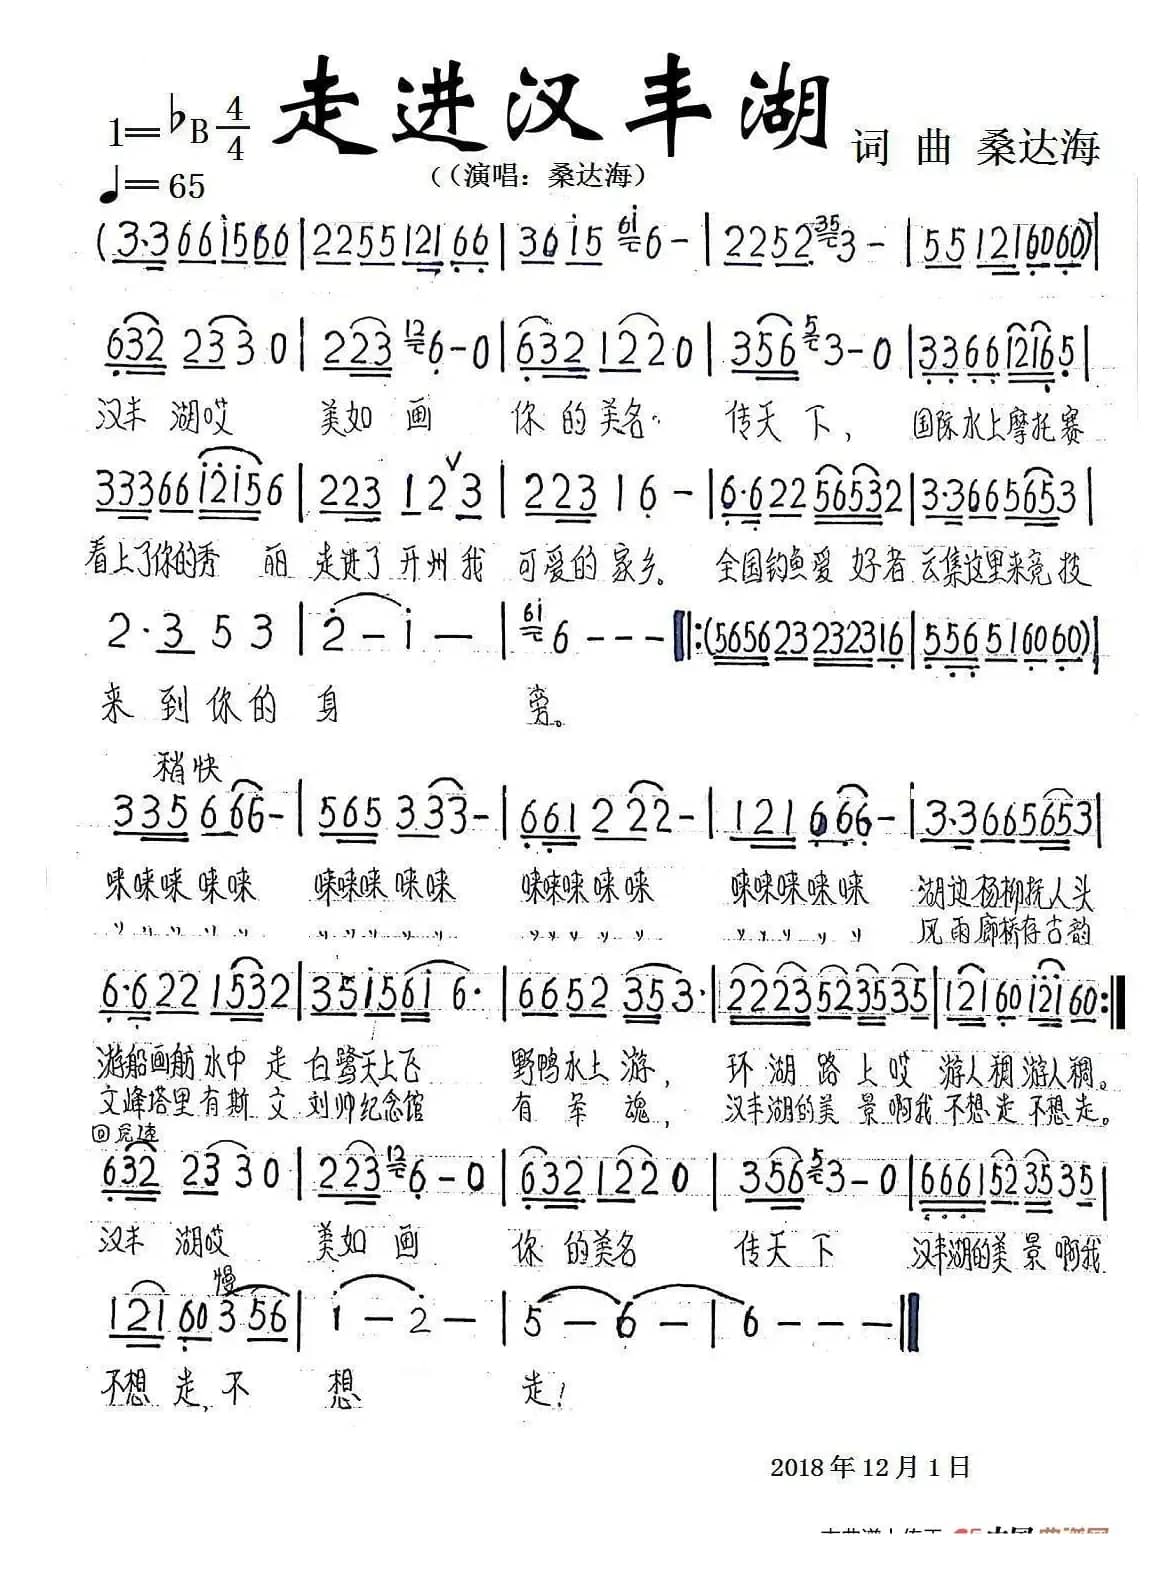 走进汉丰湖
1=♭B 4/4
词 曲 桑达海
((演唱：桑达海)
♩=65
(3·3 6 6 i 5 6 6 | 2 2 5 5 1 2 1 6 6 | 3 6 i 5 6i 6 - | 2 2 5 2 35 3 - | 5 5 1 2 1 6 0 6 0) |
6 3 2 2 3 3 0 | 2 2 3 12 6 - 0 | 6 3 2 1 2 2 0 | 3 5 6 5 3 - 0 | 3 3 6 6 1 2 1 6 5 |
汉丰 湖哎 美如 画 你 的 美名 传天 下， 国际水上摩托赛
3 3 3 6 6 i 2 i 5 6 | 2 2 3 1 2 3 | 2 2 3 1 6 - | 6·6 2 2 5 6 5 3 2 | 3·3 6 6 5 6 5 3 |
看上了你的秀 丽 走进了 开州我 可爱的 家乡。 全国钓鱼爱 好者 云集这里来竞技
2· 3 5 3 | 2 - i - | 6i 6 - - - ‖:(5 6 5 6 2 3 2 3 2 3 1 6 | 5 5 6 5 1 6 0 6 0) |
来 到 你 的 身 旁。
稍快
3 3 5 6 6 6 - | 5 6 5 3 3 3 - | 6 6 1 2 2 2 - | 1 2 1 6 6 6 - | 3·3 6 6 5 6 5 3 |
唻唻唻 唻唻 唻唻唻 唻唻 唻唻唻 唻唻 唻唻唻 唻唻 湖边杨柳抚人头
〃 〃 〃 〃 〃 〃 〃 〃 〃 〃 〃 〃 〃 〃 〃 〃 〃 〃 〃 〃 风雨廊桥存古韵
6·6 2 2 1 5 3 2 | 3 5 i 5 6 i 6· | 6 6 5 2 3 5 3· | 2 2 2 3 5 2 3 5 3 5 | 1 2 1 6 0 i 2 i 6 0 :‖
游船画舫 水中 走 白鹭天上飞 野鸭水上 游， 环 湖 路 上 哎 游人稠 游人稠。
文峰塔里有斯 文 刘帅纪念馆 有 军 魂， 汉丰湖的美 景 啊我 不想走 不想走。
回原速
6 3 2 2 3 3 0 | 2 2 3 12 6 - 0 | 6 3 2 1 2 2 0 | 3 5 6 5 3 - 0 | 6 6 6 1 5 2 3 5 3 5 |
汉丰 湖哎 美如 画 你 的美名 传天 下 汉丰湖的美 景 啊我
慢
1 2 1 6 0 3 5 6 | i - 2 - | 5 - 6 - | 6 - - - ‖
不想 走，不 想 走！
2018 年 12 月 1 日